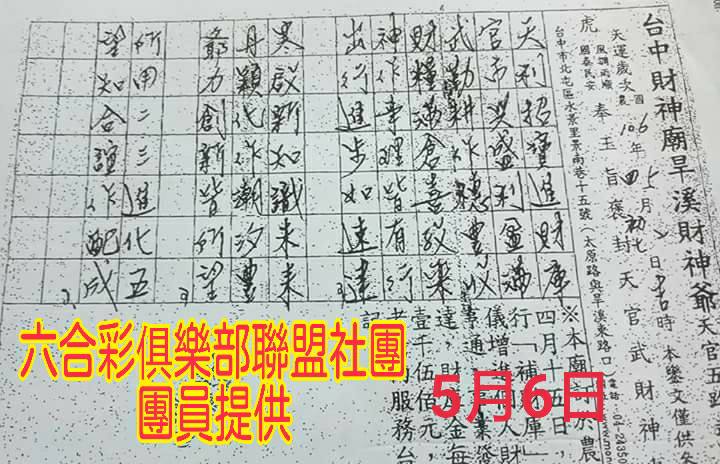 台中財神廟旱溪財神爺天官五路
天運歲次 國 106年 5月 日 吉時
農 四 初七
風調雨順
國泰民安
奉玉旨褒封天官武財神
本鑾文僅供
虎
台中市北屯區水景里景南巷十五號(太原路與旱溪東路口)
天利招寶進財庫
官市興盛利盈滿
武勤耕作聽豐收
財糧滿倉喜致樂
神作事理皆有行
出行進步如速達
寒啟新知識未來
丹穎化作潮汐豐
爺力創新皆所望
所用二三進化五
望知合誼作配成
※本廟訂於農
四月十五日,
行「補財庫」
儀增進個人財
事通、事業
達,財 金每
壹千伍佰元,
服務台
記
六合彩俱樂部聯盟社團
團員提供
5月6日